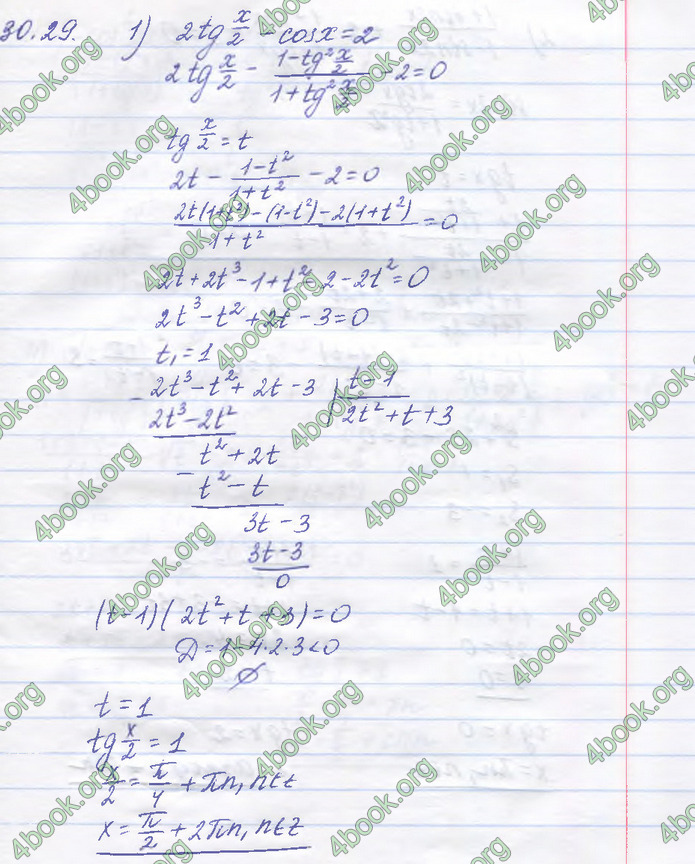 30.29. 1) 2tg x/2 - cosx = 2
2tg x/2 - (1-tg² x/2)/(1+tg² x/2) - 2 = 0
tg x/2 = t
2t - (1-t²)/(1+t²) - 2 = 0
(2t(1+t²) - (1-t²) - 2(1+t²))/(1+t²) = 0
2t + 2t³ - 1 + t² - 2 - 2t² = 0
2t³ - t² + 2t - 3 = 0
t₁ = 1
- 2t³ - t² + 2t - 3 | t - 1
2t³ - 2t² | 2t² + t + 3
t² + 2t
- t² - t
3t - 3
3t - 3
0
(t-1)(2t² + t + 3) = 0
Д = 1 - 4·2·3 < 0
∅
t = 1
tg x/2 = 1
x/2 = π/4 + πn, n∈z
x = π/2 + 2πn, n∈z
4book.org